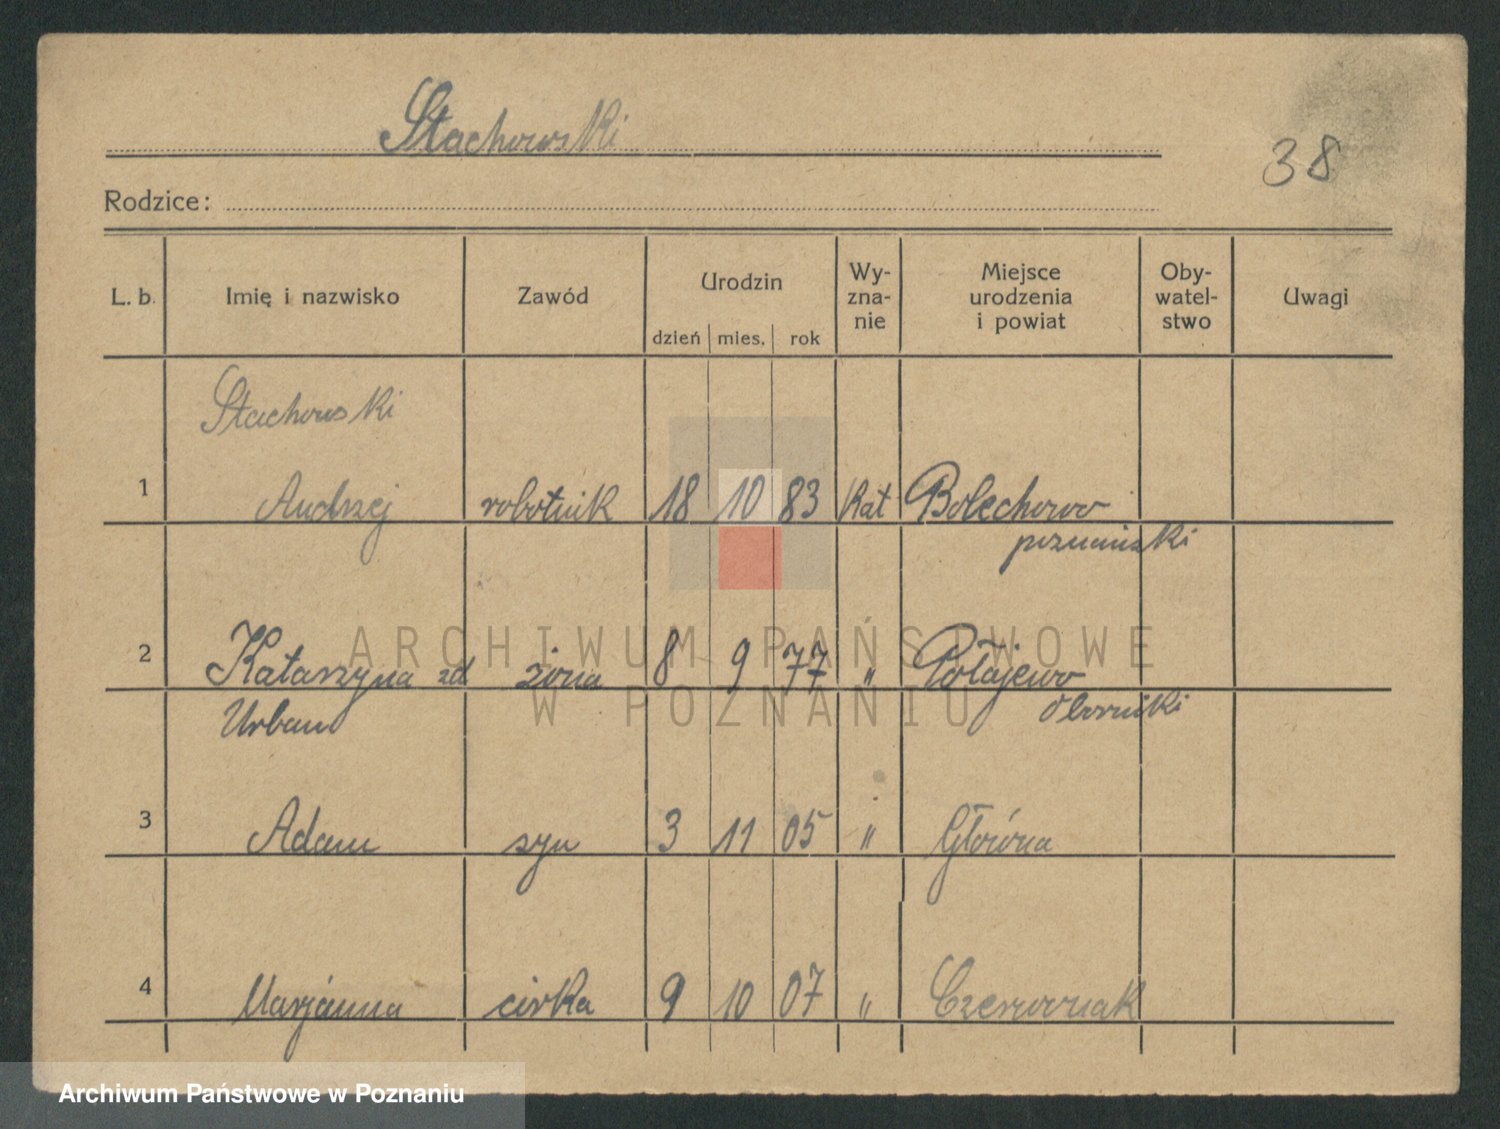 Stachowski
38
Rodzice:
L. b. Imię i nazwisko Zawód Urodzin Wy-zna-nie Miejsce urodzenia i powiat Oby-watel-stwo Uwagi
dzień mies. rok
Stachowski
1 Andrzej robotnik 18 10 83 Kat Bolechowo
poznański
2 Katarzyna zd żona 8 9 77 " Połajewo
Urban obornicki
3 Adam syn 3 11 05 " Główna
4 Marjanna córka 9 10 07 " Czerwonak
ARCHIWUM PAŃSTWOWE
W POZNANIU
Archiwum Państwowe w Poznaniu